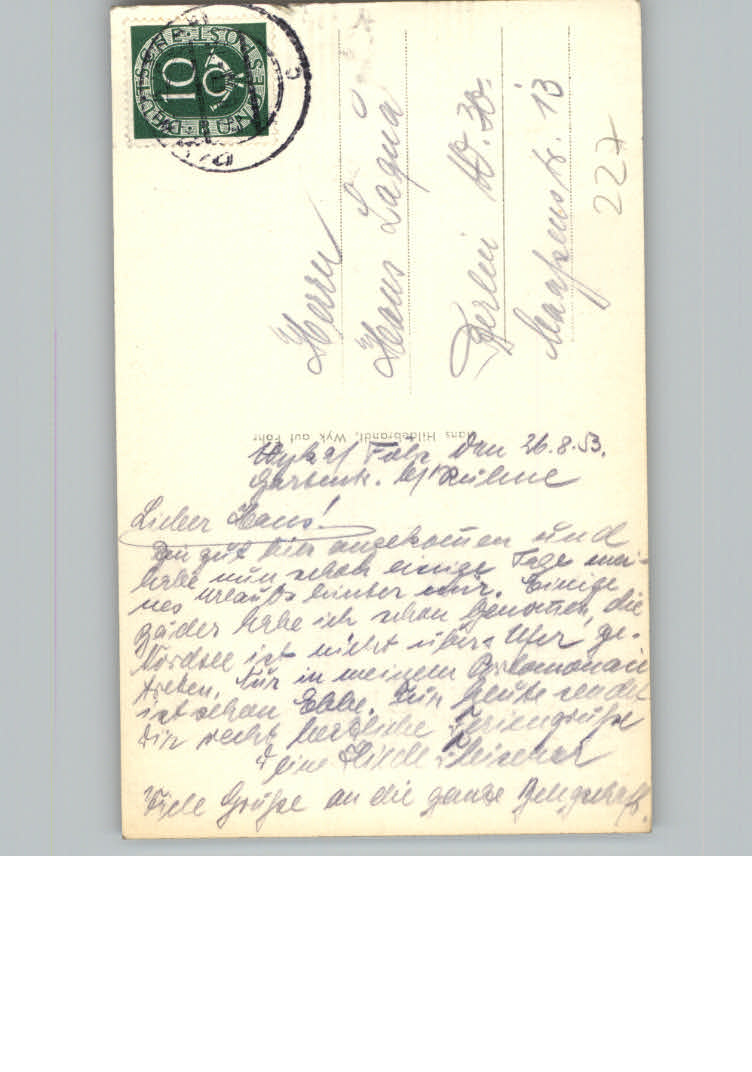 DEUTSCHE BUNDESPOST
10
Herrn
Hans Laqua
Berlin W. 30.
Maaßenstr. 13
227
Hans Hildebrandt, Wyk auf Föhr
Wyk a/ Föhr den 26.8.53.
Gartenstr. b/
Lieber Hans!
Bin gut hier angekommen und
habe nun schon einige Tage mei-
nes Urlaubs hinter mir. Einige
Bäder habe ich schon genommen, die
Nordsee ist nicht über Ufer ge-
treten. Nur in meinem Portemonaie
ist schon Ebbe. Für heute sendet
Dir recht herzliche Feriengrüße
Deine
Viele Grüße an die ganze Belegschaft.